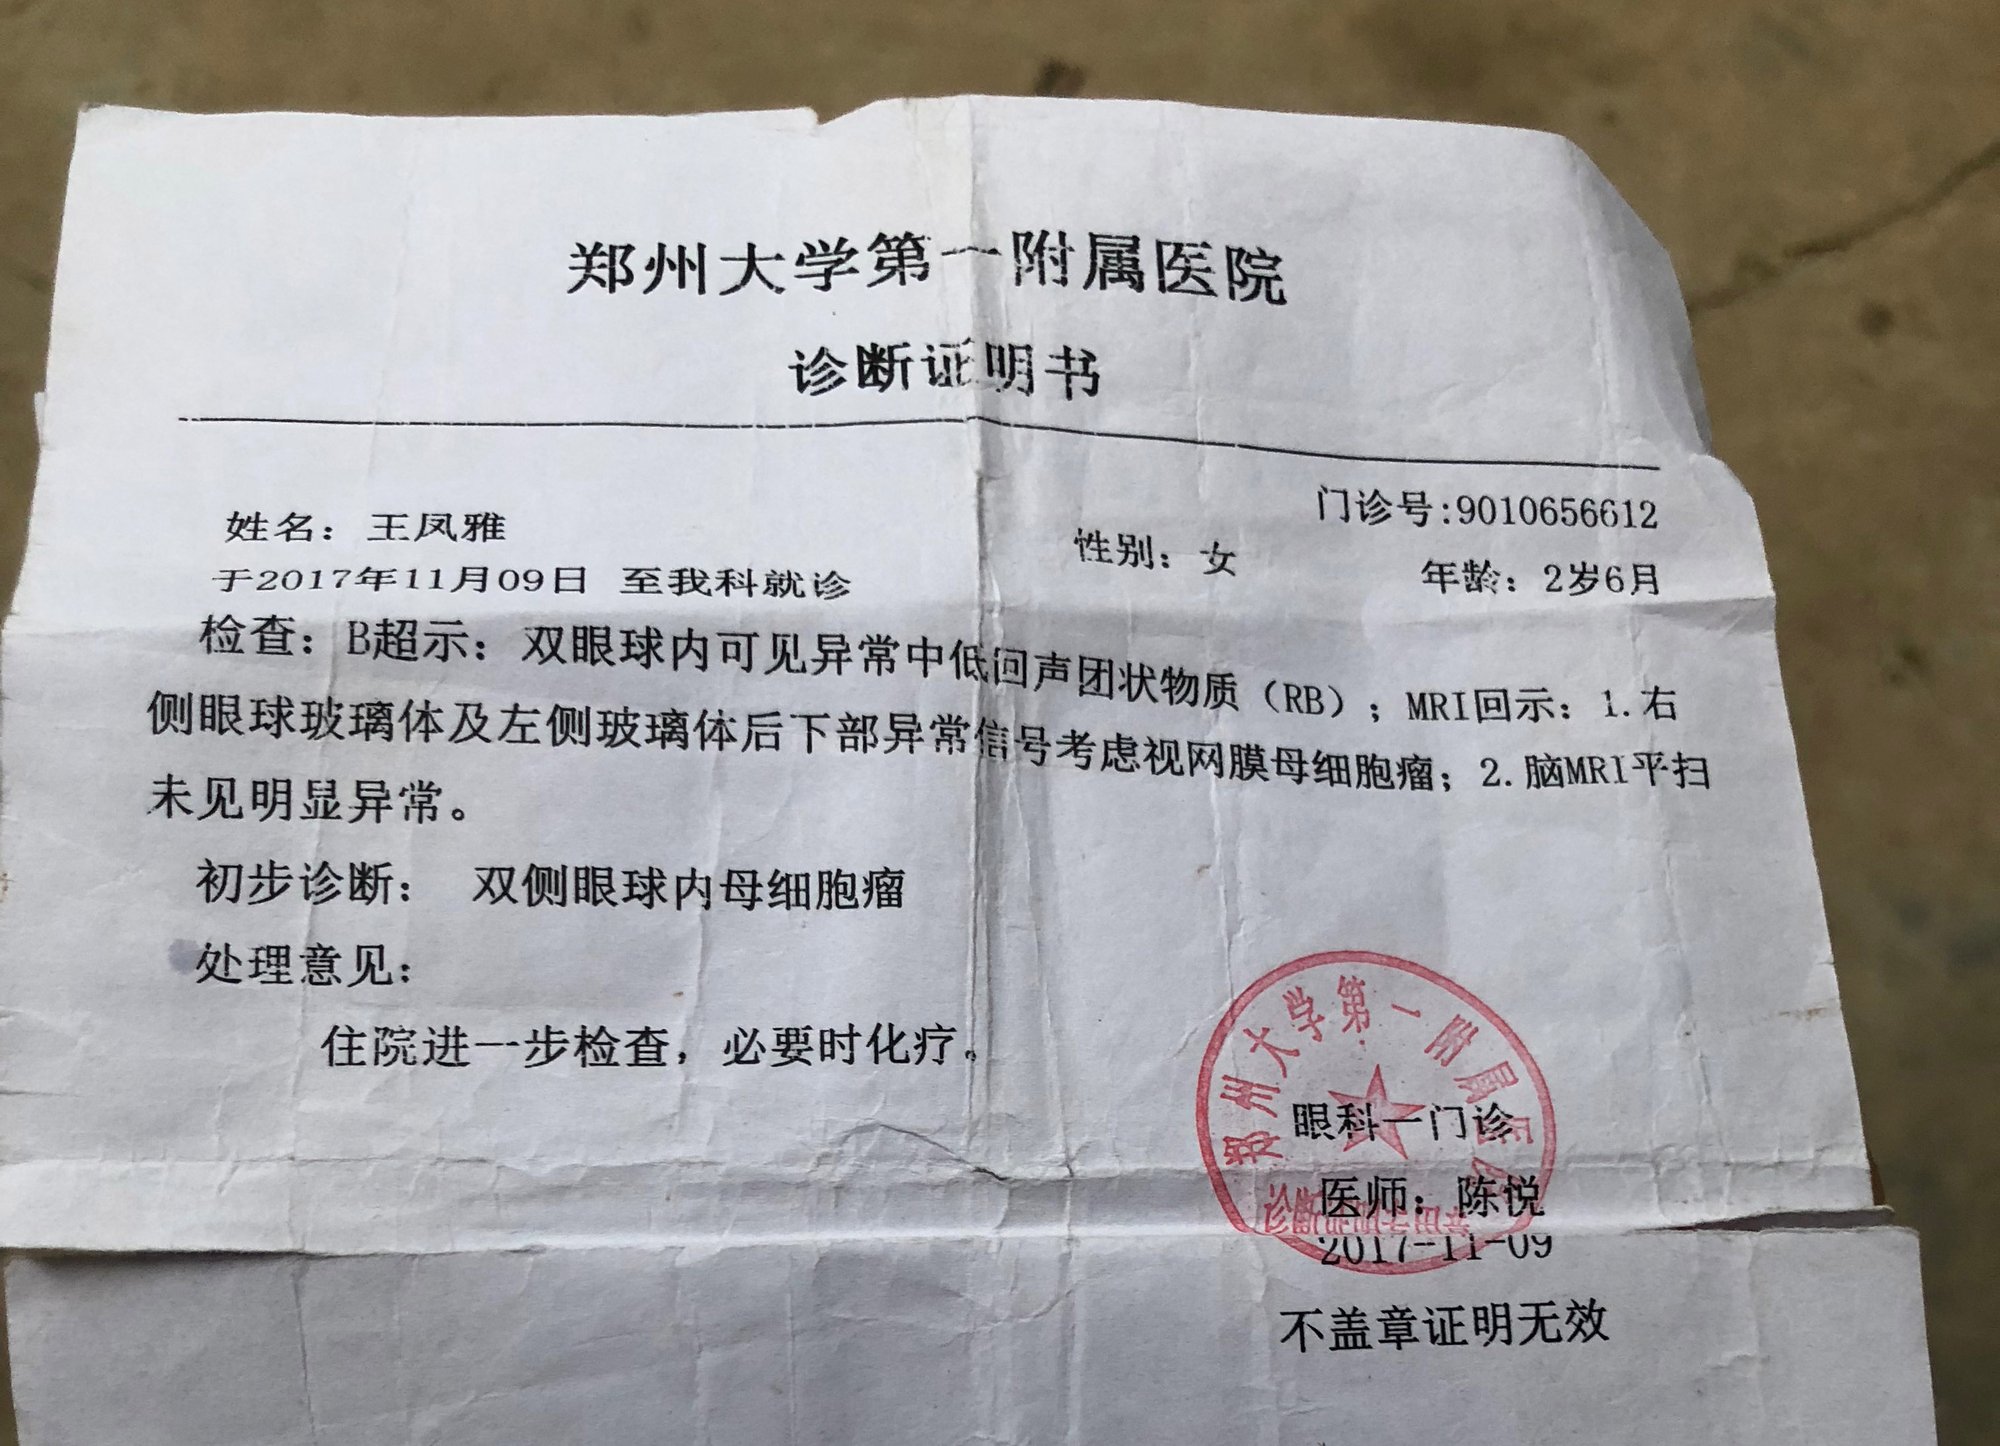 郑州大学第一附属医院
诊断证明书
门诊号:9010656612
姓名：王凤雅 性别：女 年龄：2岁6月
于2017年11月09日 至我科就诊
检查：B超示：双眼球内可见异常中低回声团状物质（RB）；MRI回示：1.右
侧眼球玻璃体及左侧玻璃体后下部异常信号考虑视网膜母细胞瘤；2.脑MRI平扫
未见明显异常。
初步诊断： 双侧眼球内母细胞瘤
处理意见：
住院进一步检查，必要时化疗。
郑州大学第一附属医院
眼科一门诊
医师：陈悦
诊断证明专用章
2017-11-09
不盖章证明无效